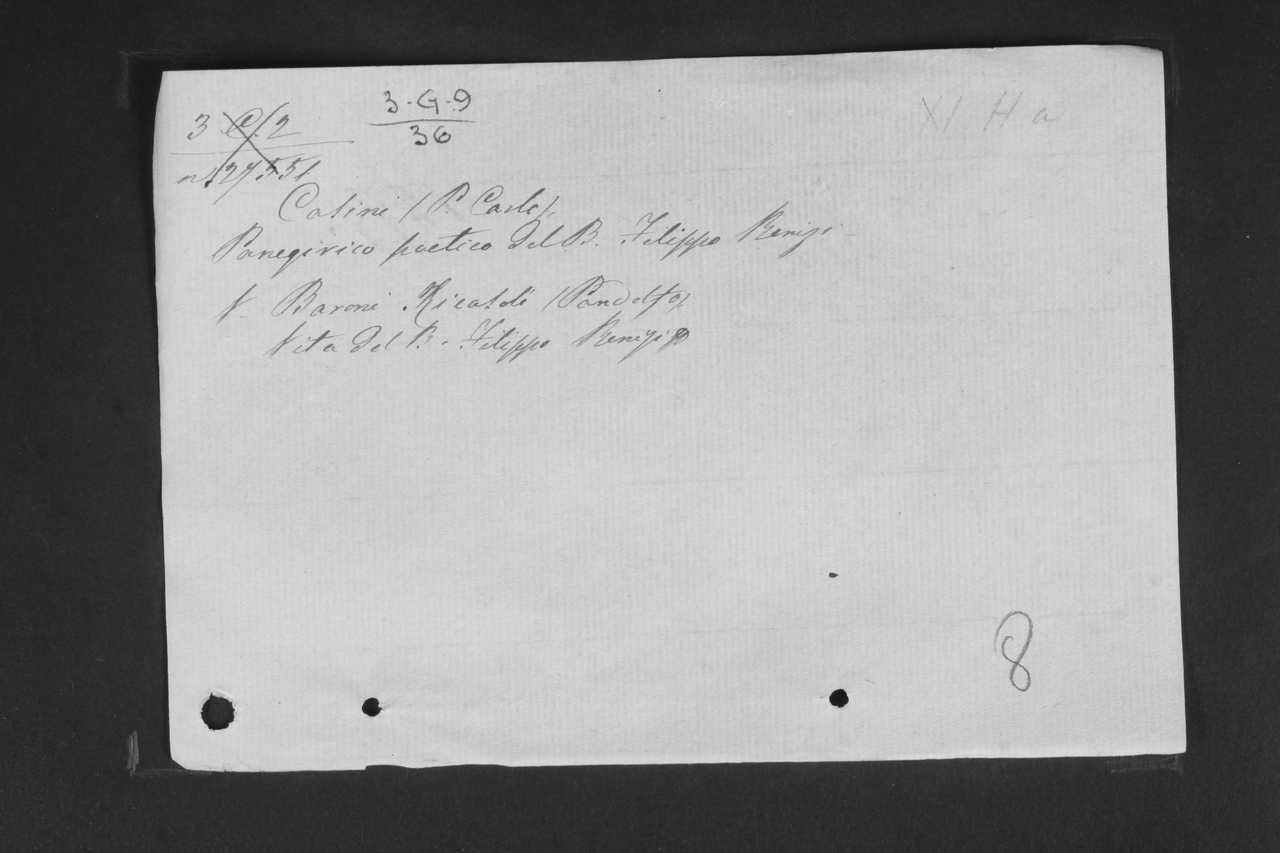 3 C/2
n. 27551
3-G-9
36
XI H a
Casini / P. Carlo /.
Panegirico poetico del B. Filippo Benizi
V. Baroni Ricasoli / Pandolfo /
Vita del B. Filippo Benizi
8